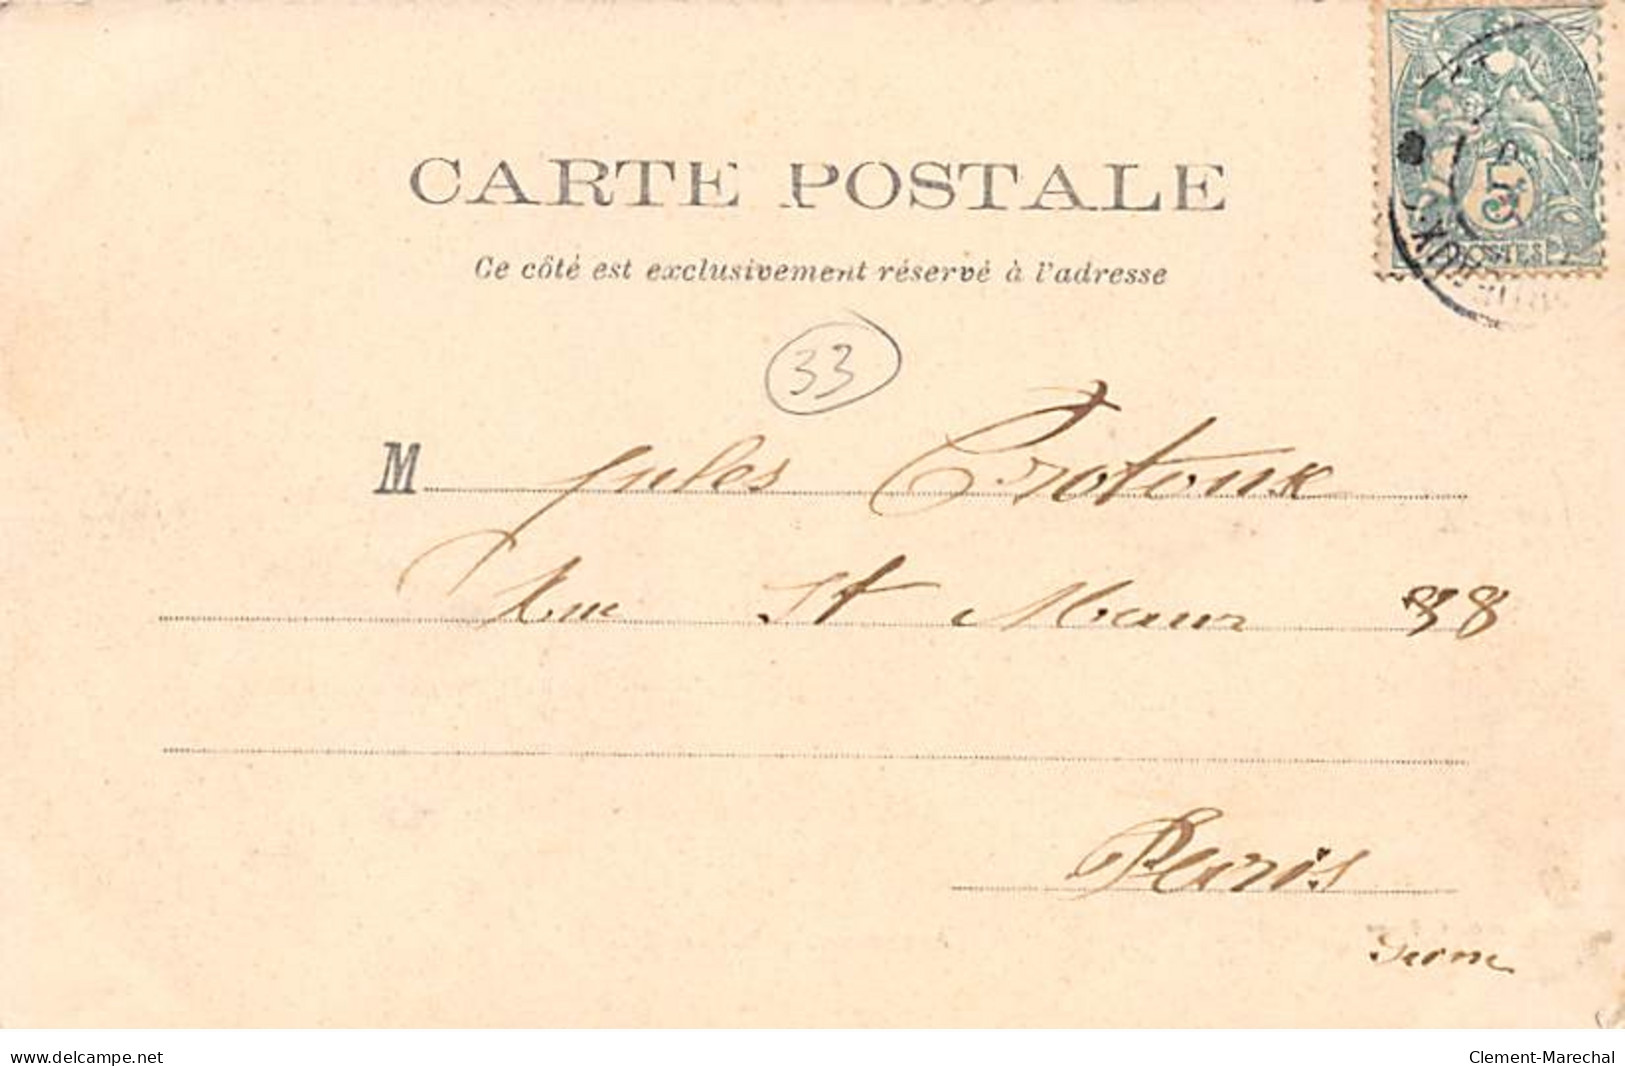 CARTE POSTALE
Ce côté est exclusivement réservé à l'adresse
33
M Jules Crotoux
Rue St Maur 88
Paris
5
POSTES
delcampe.net
Clement-Marechal